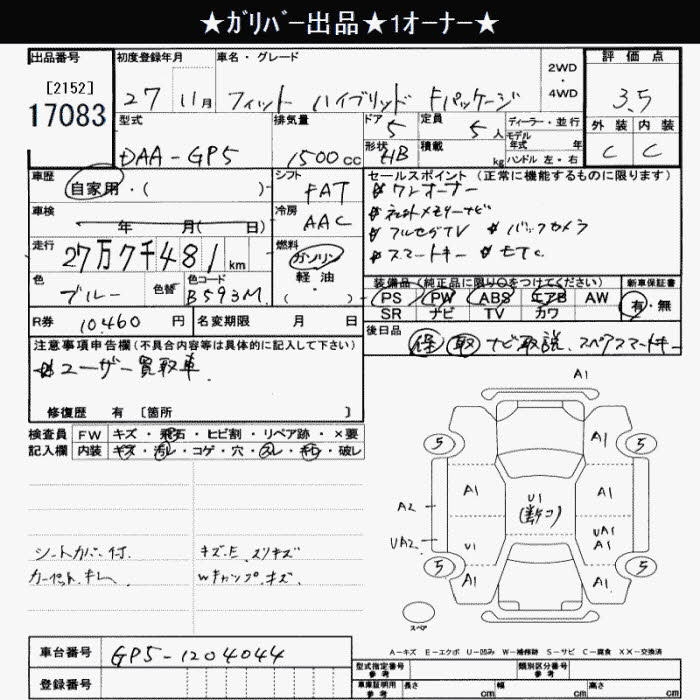 ★ｶﾞﾘﾊﾞｰ出品★1ｵｰﾅｰ★
出品番号 初度登録年月 車名・グレード 2WD・4WD 評価点
[2152]
17083 27 11月 フィット ハイブリッド Fパッケージ 3.5
型式 排気量 ドア 定員 ディーラー・並行 外装 内装
DAA-GP5 1500cc 5 5人 モデル年式 年 C C
形状 HB 積載 kg ハンドル 左・右
車歴 シフト セールスポイント (正常に機能するものに限ります)
自家用・( ) FAT ワンオーナー
車検 年 月( 日) 冷房 AAC メモリーナビ
フルセグTV バックカメラ
走行 27万7千481km 燃料 ガソリン・軽油・( ) スマートキー ETC
色 ブルー 色替 色コード B593M
装備品(純正品に限り○をつけてください) 新車保証書
PS PW ABS エアB AW 有・無
SR ナビ TV カワ
R券 10460円 名変期限 月 日
後日品 保 取 ナビ取説、スペアスマートキー
注意事項申告欄(不具合内容等は具体的に記入して下さい)
ユーザー買取車
修復歴 有 [箇所 ]
検査員 FW キズ・飛石・ヒビ割・リペア跡・×要
記入欄 内装 キズ・汚レ・コゲ・穴・スレ・キレ・破レ
A1
5 A1 5
A1 A1
U1
A2
UA2 U1 UA1
A1
5 A1 A1 5
シートカバー付 キズ・E スリキズ
カーペットキレ Wキャップキズ
スペア
A-キズ E-エクボ U-凹み W-補修跡 S-サビ C-腐食 XX-交換済
車台番号 GP5-1204044
型式指定番号 参考 類別区分番号 参考
登録番号 車庫証明用 参考 長さ cm 幅 cm 高さ cm